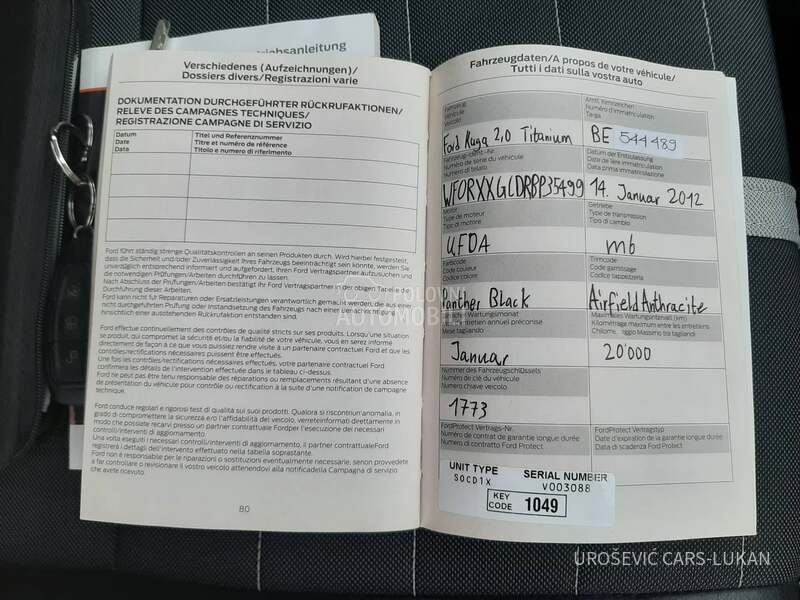 riebsanleitung
Verschiedenes (Aufzeichnungen)/
Dossiers divers/Registrazioni varie
DOKUMENTATION DURCHGEFÜHRTER RÜCKRUFAKTIONEN/
RELEVE DES CAMPAGNES TECHNIQUES/
REGISTRAZIONE CAMPAGNE DI SERVIZIO
Datum Titel und Referenznummer
Date Titre et numéro de référence
Data Titolo e numero di riferimento
Ford führt ständig strenge Qualitätskontrollen an seinen Produkten durch. Wird hierbei festgestellt,
dass die Sicherheit und/oder Zuverlässigkeit Ihres Fahrzeugs beeinträchtigt sein könnte, werden Sie
unverzüglich entsprechend informiert und aufgefordert, Ihren Ford Vertragspartner aufzusuchen und
die notwendigen Prüfungen/Arbeiten durchführen zu lassen.
Nach Abschluss der Prüfungen/Arbeiten bestätigt Ihr Ford Vertragspartner in der obigen Tabelle die
Durchführung dieser Arbeiten.
Ford kann nicht für Reparaturen oder Ersatzleistungen verantwortlich gemacht werden, die aus einer
nicht durchgeführten Prüfung oder Instandsetzung des Fahrzeugs nach einer Benachrichtigung
hinsichtlich einer ausstehenden Rückrufaktion entstanden sind.
Ford effectue continuellement des contrôles de qualité stricts sur ses produits. Lorsqu'une situation
se produit, qui compromet la sécurité et/ou la fiabilité de votre véhicule, vous en serez informé
directement de façon à ce que vous puissiez rendre visite à un partenaire contractuel Ford et que les
contrôles/rectifications nécessaires puissent être effectués.
Une fois les contrôles/rectifications nécessaires effectués, votre partenaire contractuel Ford
confirmera les détails de l'intervention effectuée dans le tableau ci-dessus.
Ford ne peut pas être tenu responsable des réparations ou remplacements résultant d'une absence
de présentation du véhicule pour contrôle ou rectification à la suite d'une notification de campagne
technique.
Ford conduce regolari e rigorosi test di qualità sui suoi prodotti. Qualora si riscontri un'anomalia, in
grado di compromettere la sicurezza e/o l'affidabilità del veicolo, verrete informati direttamente in
modo che possiate recarvi presso un partner contrattuale Ford per l'esecuzione dei necessari
controlli/interventi di aggiornamento.
Una volta eseguiti i necessari controlli/interventi di aggiornamento, il partner contrattuale Ford
registrerà i dettagli dell'intervento effettuato nella tabella soprastante.
Ford non è responsabile per le riparazioni o sostituzioni eventualmente necessarie, se non provvedete
a far controllare o revisionare il vostro veicolo attenendovi alla notifica della Campagna di servizio
che avete ricevuto.
80
Fahrzeugdaten/A propos de votre véhicule/
Tutti i dati sulla vostra auto
Fahrzeug Amtl. Kennzeichen
Véhicule Numéro d'immatriculation
Veicolo Targa
Ford Kuga 2,0 Titanium BE 544489
Fahrzeug-Ident.-Nr. Datum der Erstzulassung
Numéro de série du véhicule Date de 1ère immatriculation
Numero di telaio Data prima immatricolazione
WF0RXXGCDRBP35499 14. Januar 2012
Motor Getriebe
Type de moteur Type de transmission
Tipo di motore Tipo di cambio
UFDA m6
Farbcode Trimcode
Code couleur Code garnissage
Codice colore Codice tappezzeria
Panther Black Airfield Anthracite
Wartungsmonat Maximales Wartungsintervall (km)
entretien annuel préconisé Kilométrage maximum entre les entretiens
Mese tagliando Chilometraggio Massimo tra tagliandi
Januar 20'000
Nummer des Fahrzeugschlüssels
Numéro de clé du véhicule
Numero chiave veicolo
1773
FordProtect Vertrags-Nr. FordProtect Vertragstyp
Numéro de contrat de garantie longue durée Date d'expiration de la garantie longue durée
Numero di contratto Ford Protect Data di scadenza Ford Protect
UNIT TYPE SERIAL NUMBER
SOCD1X V003088
KEY CODE 1049
POLOVNI
AUTOMOBILI
UROŠEVIĆ CARS-LUKAN